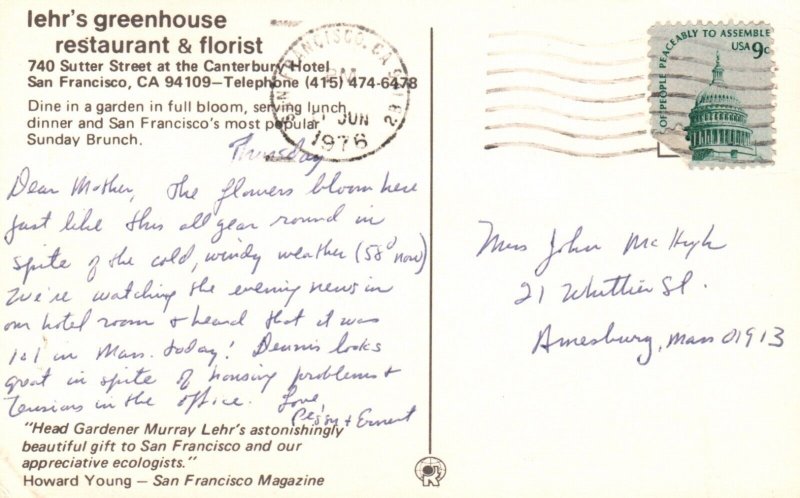 lehr's greenhouse
restaurant & florist
740 Sutter Street at the Canterbury Hotel
San Francisco, CA 94109—Telephone (415) 474-6478
Dine in a garden in full bloom, serving lunch,
dinner and San Francisco's most popular
Sunday Brunch.
SAN FRANCISCO, CA
JUN
1976
OF PEOPLE PEACEABLY TO ASSEMBLE
USA 9c
Thursday
Dear Mother, The flowers bloom here
just like this all year round in
spite of the cold, windy weather (58° now)
We're watching the evening news in
our hotel room & heard that it was
101 in Mass. today! Dennis looks
great in spite of housing problems &
Tensions in the office. Love,
Peggy + Ernest
"Head Gardener Murray Lehr's astonishingly
beautiful gift to San Francisco and our
appreciative ecologists."
Howard Young — San Francisco Magazine
Mrs John McHugh
21 Whittier St.
Amesbury, Mass 01913